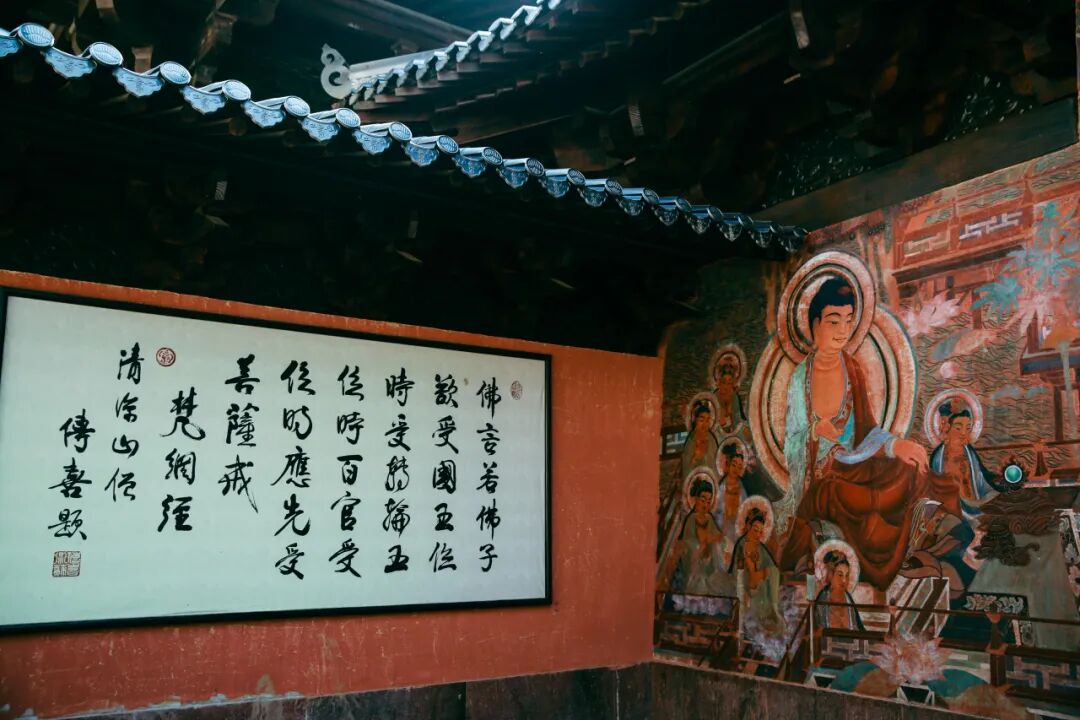 佛言若佛子
欲受國王位
時受轉輪王
位時百官受
位時應先受
菩薩戒
梵網經
清涼山僧
傳喜題